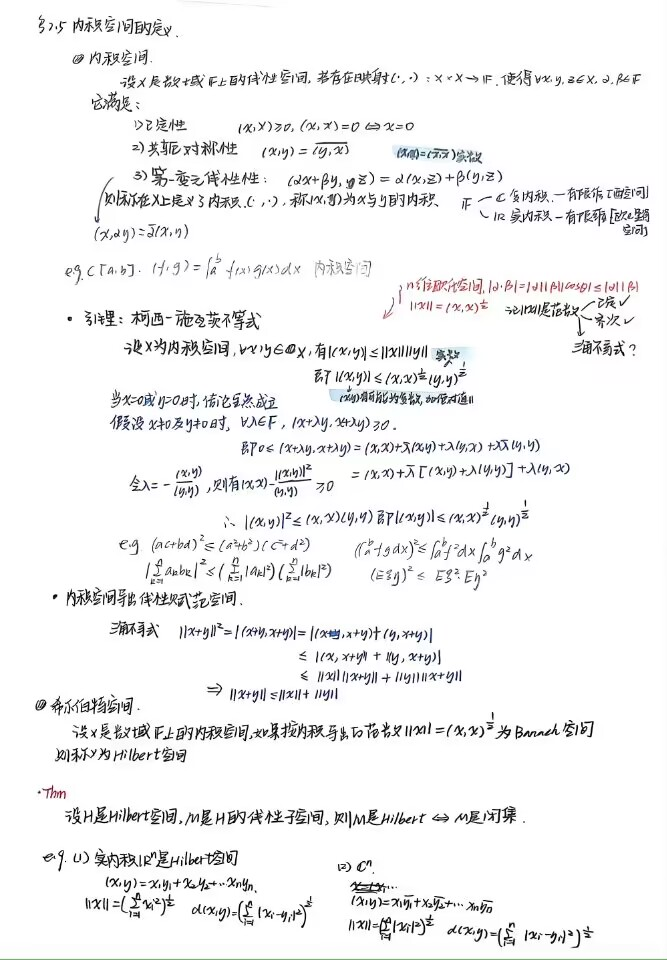 §2.5 内积空间的定义.
内积空间.
设X是数域F上的线性空间, 若存在映射(·,·): X×X→F. 使得∀x,y,z∈X, α,β∈F
它满足:
1) 正定性 (x,x)≥0, (x,x)=0 ⇔ x=0
2) 共轭对称性 (x,y)=\overline{(y,x)} (x,x)=\overline{(x,x)} 实数
3) 第一变元线性性: (αx+βy, z)=α(x,z)+β(y,z)
则称在X上定义了内积(·,·), 称(x,y)为x与y的内积. F C 复内积. —有限维[酉空间]
(x,αy)=\overline{α}(x,y) R 实内积—有限维[欧几里得空间]
e.g. C[a,b]. (f,g)=∫_a^b f(x)g(x)dx 内积空间
n维欧氏空间, |α·β|=|α||β|cosθ|≤|α||β|
||x||=(x,x)^{1/2} 记||x||是范数 正定✓
齐次✓
三角不等式?
• 引理: 柯西-施瓦茨不等式
设X为内积空间, ∀x,y∈X, 有|(x,y)|≤||x||||y|| 实数
即|(x,y)|≤(x,x)^{1/2}(y,y)^{1/2}
当x=0或y=0时, 结论显然成立 (x,y)有可能为复数, 加绝对值||
假设x≠0及y≠0时, ∀λ∈F, (x+λy, x+λy)≥0.
即0≤(x+λy, x+λy)=(x,x)+\overline{λ}(x,y)+λ(y,x)+λ\overline{λ}(y,y)
=(x,x)+\overline{λ}[(x,y)+λ(y,y)]+λ(y,x)
令λ=-\frac{(x,y)}{(y,y)}, 则有(x,x)-\frac{|(x,y)|^2}{(y,y)}≥0
∴ |(x,y)|^2≤(x,x)(y,y) 即|(x,y)|≤(x,x)^{1/2}(y,y)^{1/2}
e.g (ac+bd)^2≤(a^2+b^2)(c^2+d^2) (∫_a^b fg dx)^2≤∫_a^b f^2dx∫_a^b g^2dx
|∑_{k=1}^n a_k b_k|^2≤(∑_{k=1}^n|a_k|^2)(∑_{k=1}^n|b_k|^2) (Eξη)^2≤Eξ^2·Eη^2
• 内积空间导出线性赋范空间.
三角不等式 ||x+y||^2=|(x+y,x+y)|=|(x,x+y)+(y,x+y)|
≤|(x,x+y)|+|(y,x+y)|
≤||x||||x+y||+||y||||x+y||
⇒ ||x+y||≤||x||+||y||
希尔伯特空间.
设X是数域F上的内积空间, 如果按内积导出的范数||x||=(x,x)^{1/2}为Banach空间
则称X为Hilbert空间
•Thm
设H是Hilbert空间, M是H的线性子空间, 则M是Hilbert ⇔ M是闭集.
e.g. (1) 实内积R^n是Hilbert空间 (2) C^n.
(x,y)=x_1y_1+x_2y_2+...x_ny_n. (x,y)=x_1\overline{y_1}+x_2\overline{y_2}+...x_n\overline{y_n}
||x||=(∑_{i=1}^n x_i^2)^{1/2} d(x,y)=(∑_{i=1}^n|x_i-y_i|^2)^{1/2} ||x||=(∑_{i=1}^n|x_i|^2)^{1/2} d(x,y)=(∑_{i=1}^n|x_i-y_i|^2)^{1/2}